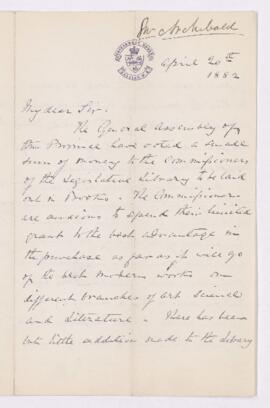 Mr Archibald
April 20th
1882
My dear Sir.
The General Assembly of
this Province have voted a small
sum of money to the Commissioners
of the Legislative Library to be laid
out in Books. The Commissioners
are anxious to spend their limited
grant to the best advantage in
the purchase as far as it will go
of the best Modern works on
different branches of art Science
and Literature. There has been
but little addition made to the Library